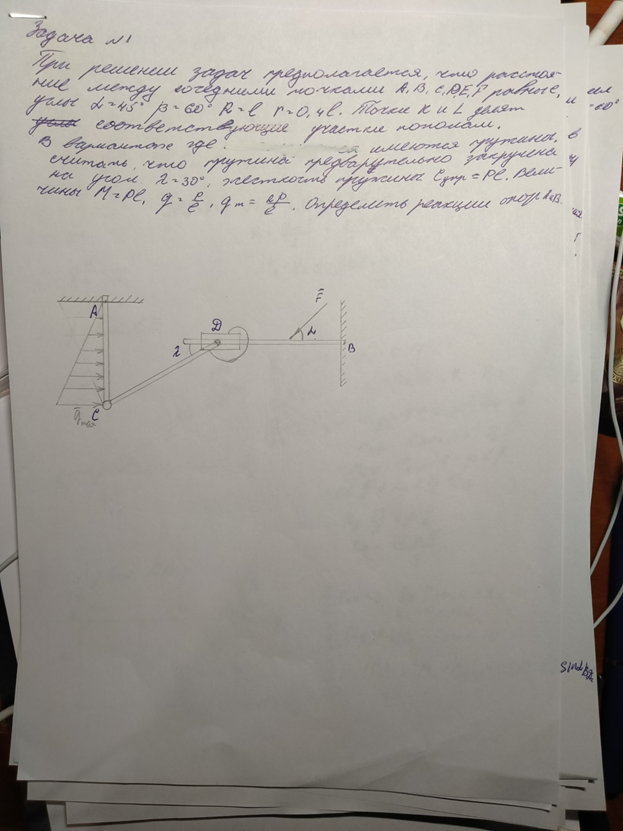 Задача №1
При решении задач предполагается, что расстоя-
ние между соседними точками A, B, C, D, E, F равные,
углы α=45° β=60° R=l r=0,4l. Точки K и L делят
соответствующие участки пополам.
В вариантах где имеются пружины,
считать, что пружина предварительно закручена
на угол λ=30°, жесткость пружины Cупр=Pl. Вели-
чины M=Pl,
Определить реакции опор A и B.
A
C
D
λ
F̅
α
B